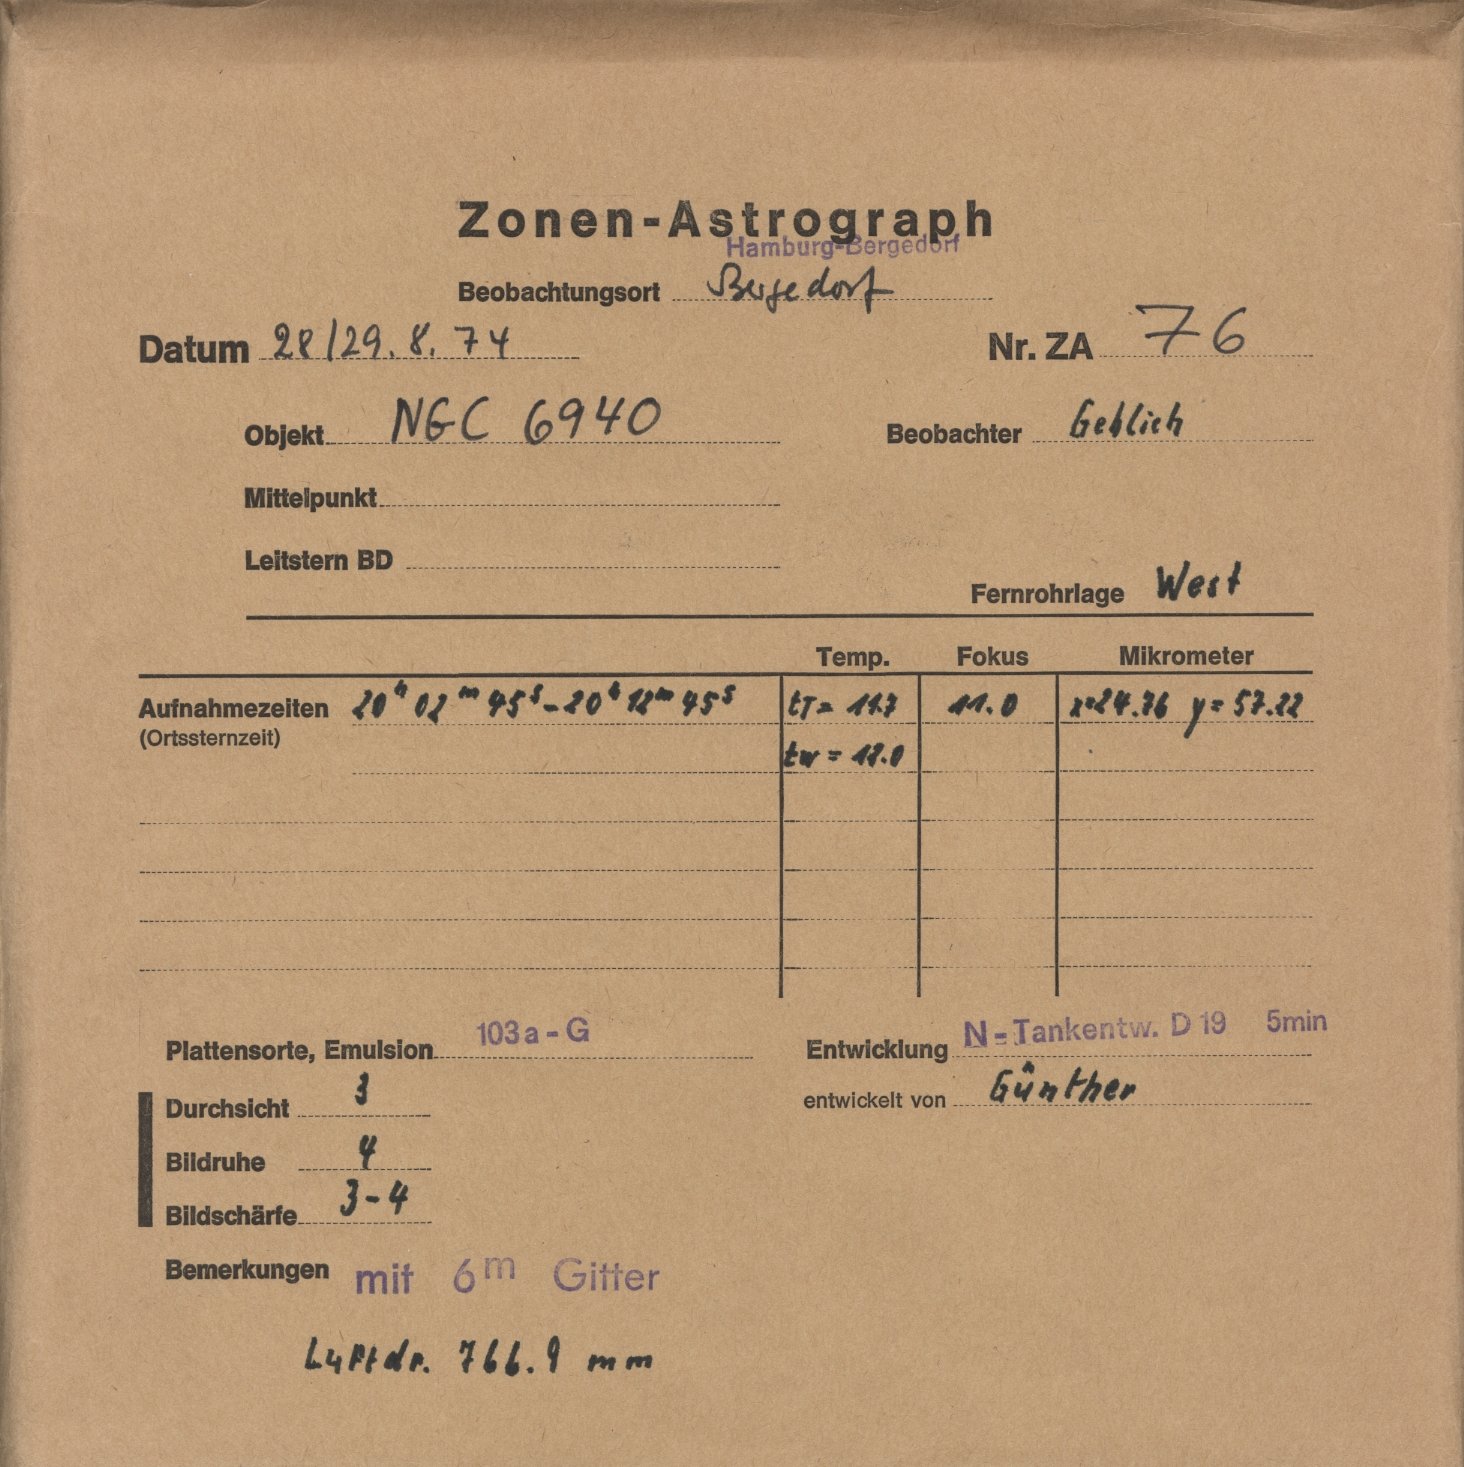 Zonen-Astrograph
Hamburg-Bergedorf
Beobachtungsort Bergedorf
Datum 28/29.8.74 Nr. ZA 76
Objekt NGC 6940 Beobachter Gehlich
Mittelpunkt
Leitstern BD
Fernrohrlage West
Temp. Fokus Mikrometer
Aufnahmezeiten 20h 02m 45s - 20h 12m 45s tT = 11.7 11.0 x=24.76 y=57.22
(Ortssternzeit)
tw = 12.0
Plattensorte, Emulsion 103a-G Entwicklung N-Tankentw. D19 5min
Durchsicht 3 entwickelt von Günther
Bildruhe 4
Bildschärfe 3-4
Bemerkungen mit 6m Gitter
Luftdr. 766.9 mm